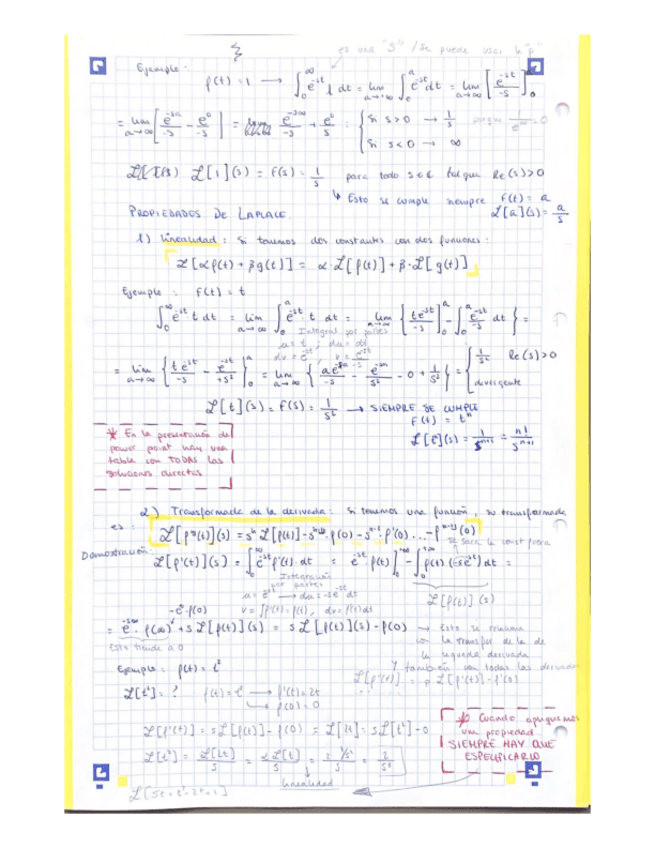 es una "S" / Se puede usar la "p"
Ejemplo:
f(t) = 1 ⟶ ∫₀^∞ e^{-st} 1 dt = lim_{a→∞} ∫₀^a e^{-st} dt = lim_{a→∞} [e^{-st}/-s]₀^a
= lim_{a→∞} [e^{-sa}/-s - e^0/-s] = e^{-s∞}/-s + e^0/s : { Si s>0 → 1/s porque 1/e^∞=0
Si s<0 → ∞
ℒ[1](s) = F(s) = 1/s para todo s∈ℂ tal que Re(s)>0
↳ Esto se cumple siempre F(t) = a
ℒ[a](s) = a/s
PROPIEDADES DE LAPLACE
1) Linealidad: Si tenemos dos constantes con dos funciones:
ℒ[αf(t) + βg(t)] = α·ℒ[f(t)] + β·ℒ[g(t)]
Ejemplo: F(t) = t
∫₀^∞ e^{-st} t dt = lim_{a→∞} ∫₀^a e^{-st} t dt = lim_{a→∞} { te^{-st}/-s ]₀^a - ∫₀^a e^{-st}/-s dt } =
Integral por partes
u = t ; du = dt
dv = e^{-st}, v = e^{-st}/-s
= lim_{a→∞} { te^{-st}/-s - e^{-st}/+s² }₀^a = lim_{a→∞} { ae^{-sa}/-s - e^{-sa}/s² - 0 + 1/s² } = { 1/s² Re(s)>0
divergente
ℒ[t](s) = F(s) = 1/s² → SIEMPRE SE CUMPLE
F(t) = t^n
ℒ[t^n](s) = = n!/s^{n+1}
* En la presentación de
power point hay una
tabla con TODAS las
soluciones directas
2) Transformada de la derivada: Si tenemos una función, su transformada
es: ℒ[f^n(t)](s) = s^n ℒ[f(t)] - s^{n-1}·f(0) - s^{n-2}·f'(0) ... - f^{n-1}(0)
Se saca la const fuera
Demostración:
ℒ[f'(t)](s) = ∫₀^∞ e^{-st} f'(t)·dt = e^{-st}·f(t) ]₀^{+∞} - ∫₀^{+∞} f(t)(-se^{-st}) dt =
Integración
por partes
u = e^{-st} → du = -se^{-st} dt
ℒ[f(t)](s)
-e^0·f(0) v = ∫f'(t) = f(t), dv = f'(t)dt
= e^{-s∞}·f(∞) + sℒ[f(t)](s) = sℒ[f(t)](s) - f(0) → Esto se relaciona
Esto tiende a 0
con la transfor de la de
la segunda derivada
Y también con todas las derivadas
Ejemplo: f(t) = t²
ℒ[t²] = ? f(t) = t² ⟶ f'(t) = 2t
↳ f(0) = 0
ℒ[f'(t)] = sℒ[f(t)] - f(0) = ℒ[2t] = sℒ[t²] - 0
ℒ[t²] = ℒ[2t]/s = 2ℒ[t]/s = 2·1/s²/s = 2/s³
linealidad
* Cuando apliquemos
una propiedad
SIEMPRE HAY QUE
ESPECIFICARLO